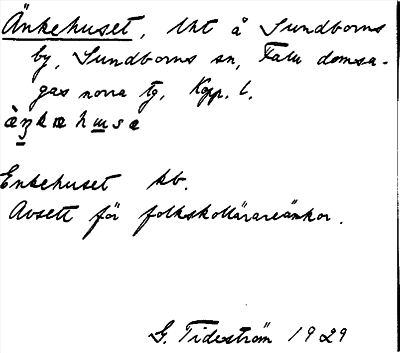 Änkehuset, lht å Sundborns
by, Sundborns sn, Falu domsa-
gas norra tg, Kpp. l.
àŋkæhusæ
Enkehuset kb.
Avsett för folkskollärareänkor.
G. Tideström 1929